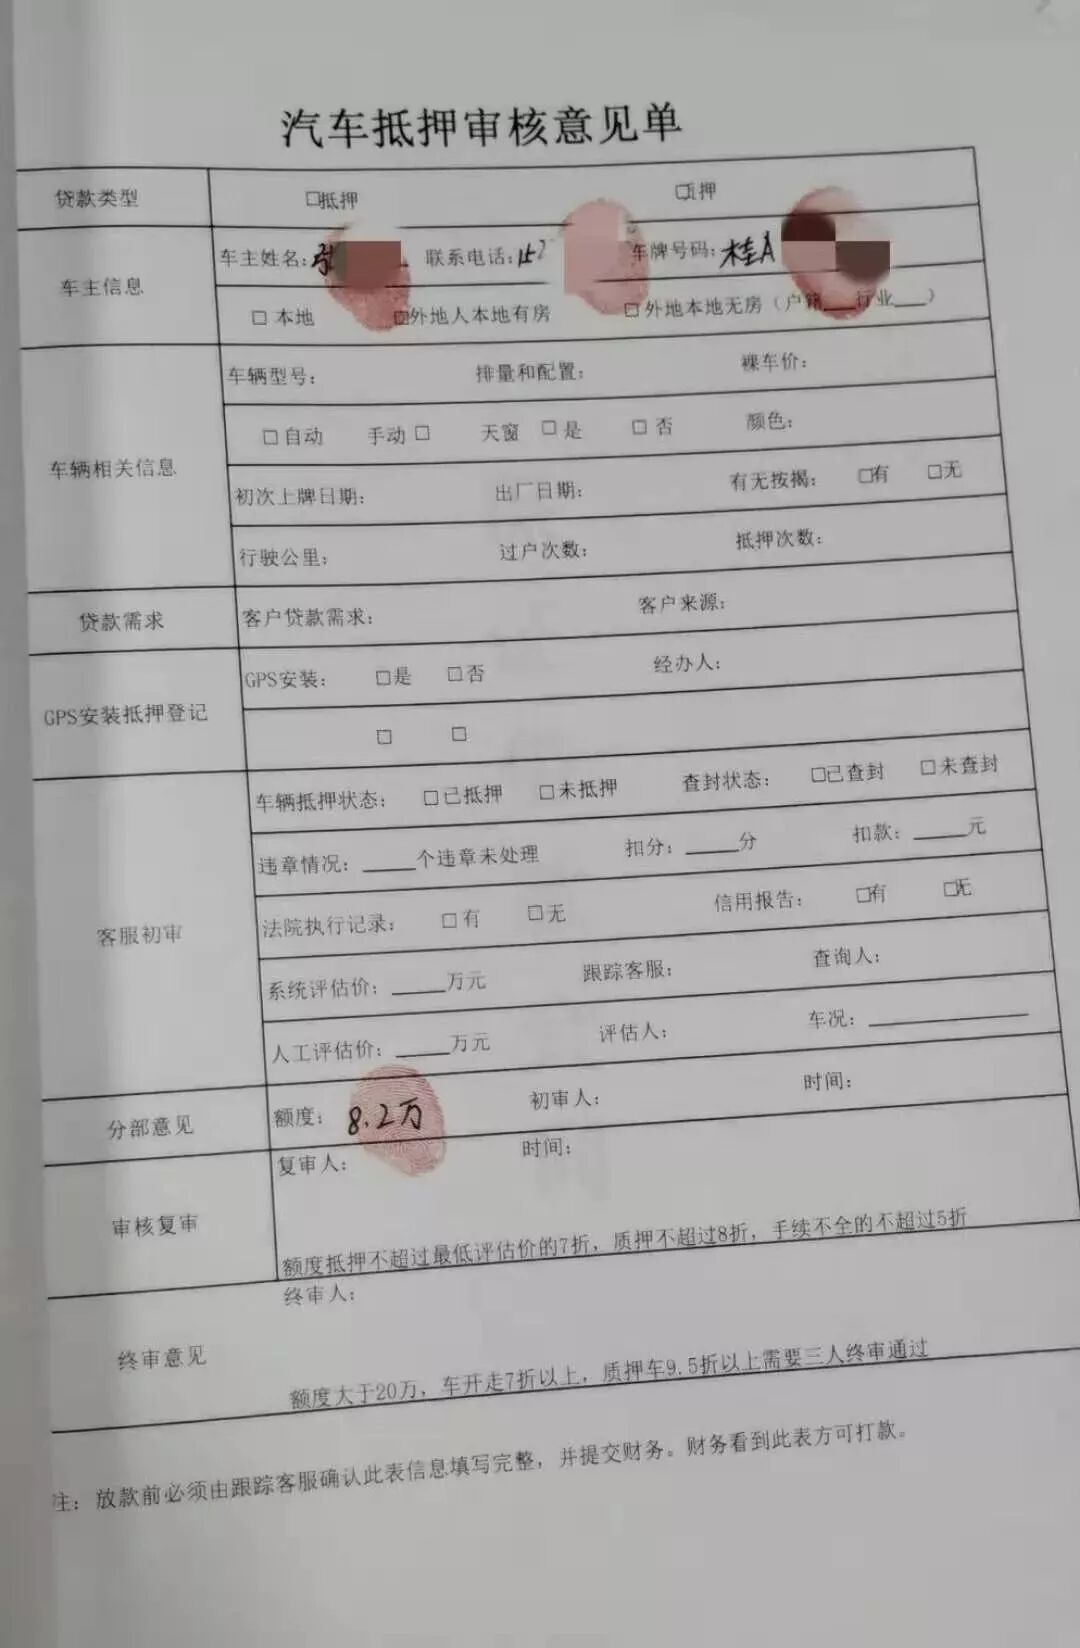 汽车抵押审核意见单
贷款类型 □抵押 □质押
车主信息 车主姓名: 张 联系电话: 157 车牌号码: 桂A
□ 本地 □外地人本地有房 □外地本地无房（户籍___行业___）
车辆相关信息 车辆型号: 排量和配置: 裸车价:
□自动 手动□ 天窗 □是 □否 颜色:
初次上牌日期: 出厂日期: 有无按揭: □有 □无
行驶公里: 过户次数: 抵押次数:
贷款需求 客户贷款需求: 客户来源:
GPS安装抵押登记 GPS安装: □是 □否 经办人:
□ □
客服初审 车辆抵押状态: □已抵押 □未抵押 查封状态: □已查封 □未查封
违章情况: ____个违章未处理 扣分: ____分 扣款: ____元
法院执行记录: □有 □无 信用报告: □有 □无
系统评估价: ____万元 跟踪客服: 查询人:
人工评估价: ____万元 评估人: 车况: ____________
分部意见 额度: 8.2万 初审人: 时间:
审核复审 复审人: 时间:
额度抵押不超过最低评估价的7折，质押不超过8折，手续不全的不超过5折
终审意见 终审人:
额度大于20万，车开走7折以上，质押车9.5折以上需要三人终审通过
注: 放款前必须由跟踪客服确认此表信息填写完整，并提交财务。财务看到此表方可打款。